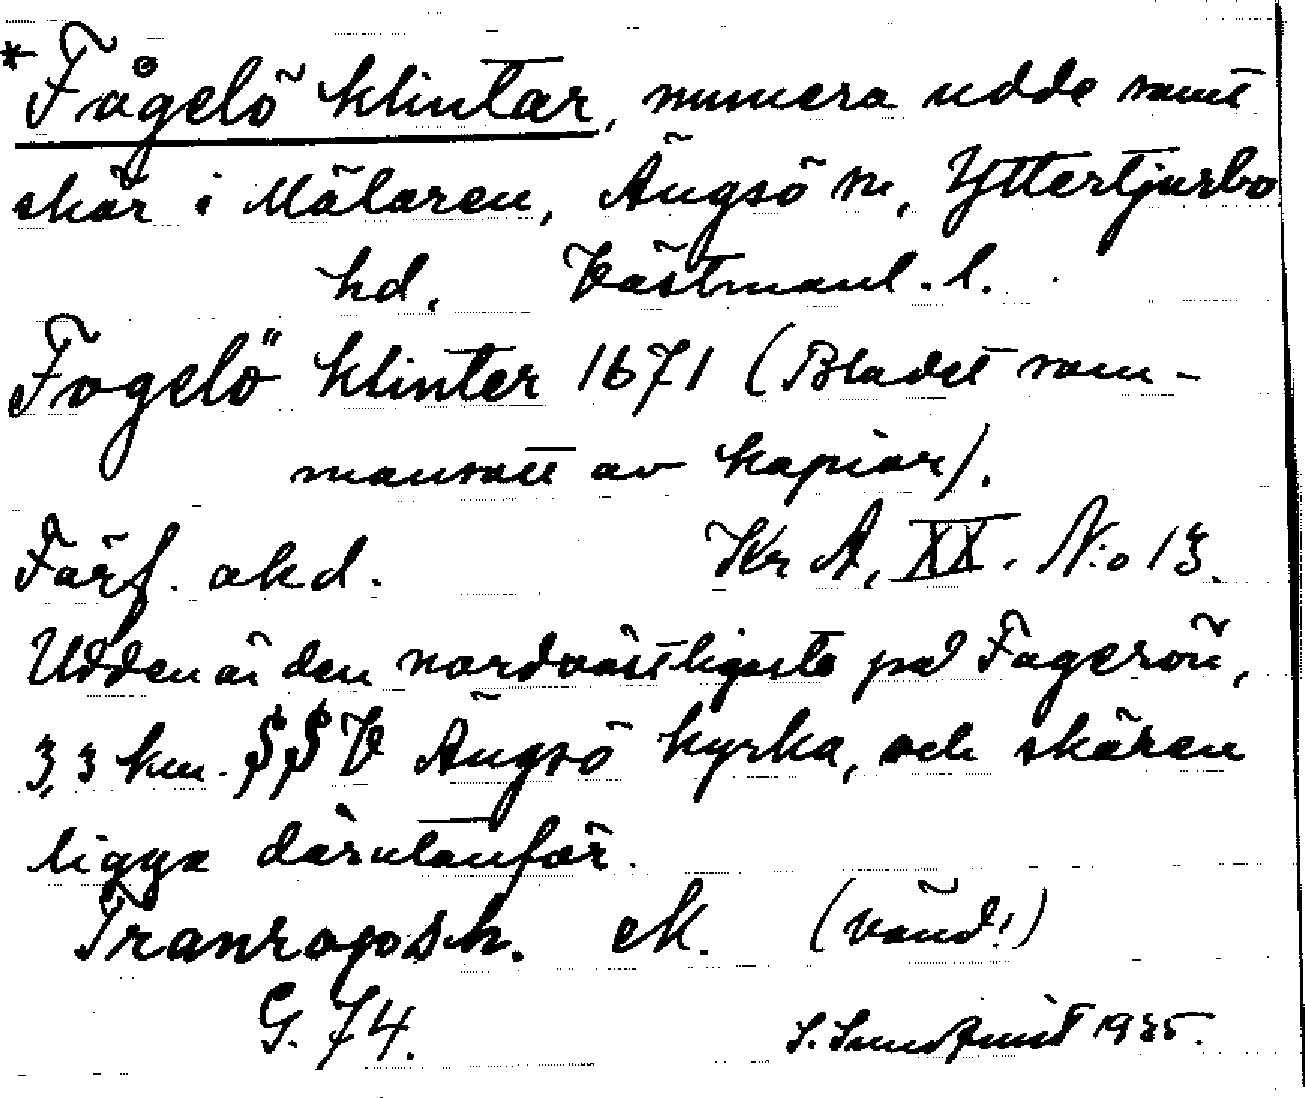 *Fågelö klintar, numera udde samt
skär i Mälaren, Ängsö sn, Yttertjurbo
hd. Västmanl. l.
Fogelö klinter 1671 (Bladet sam-
mansatt av kopior).
Förf. okd. Kr A, XX. N:o 13.
Udden är den nordvästligaste på Fagerön,
3,3 km. SSV Ängsö kyrka, och skären
ligga därutanför.
Tranrapsh. ek. (vänd!)
G. 74. S. Sundquist 1935.